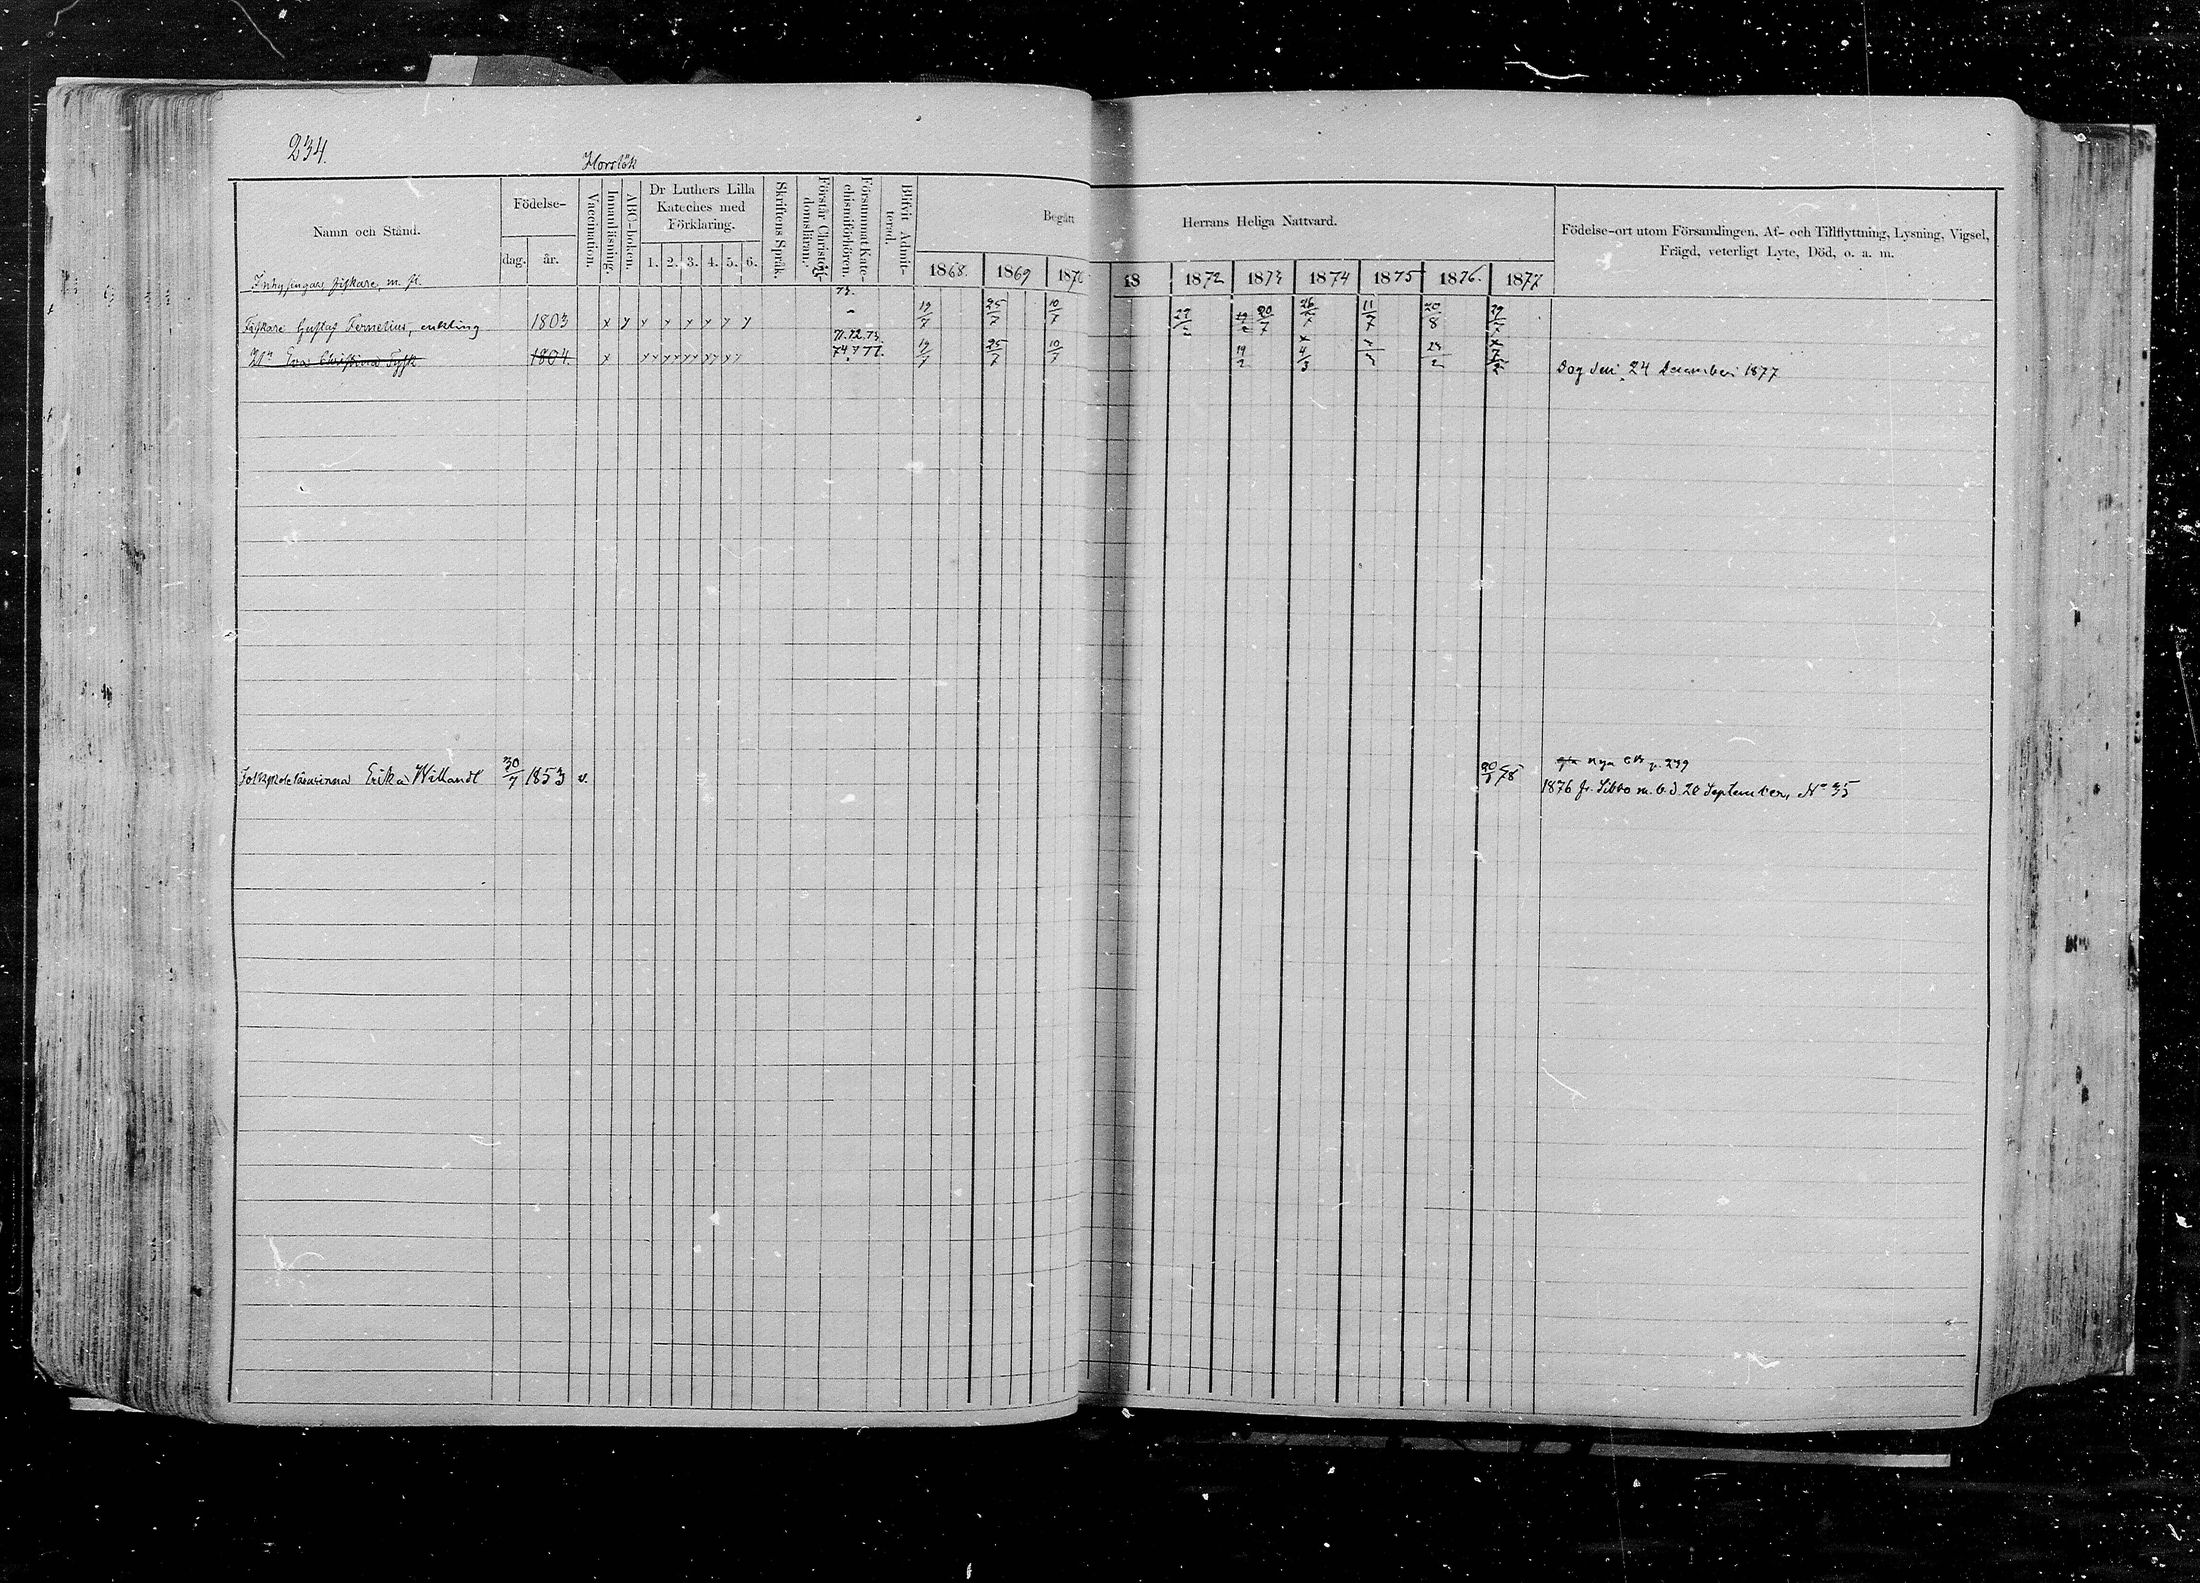 234.
Horslök
Namn och Stånd.
Födelse-
dag. år.
Vaccination.
Innanläsning.
ABC-boken.
Dr Luthers Lilla Kateches med Förklaring.
1. 2. 3. 4. 5. 6.
Skriftens Språk.
Förstår Christendomsläran.
Försummat Katechismiförhören.
Blifvit Admitterad.
Begått Herrans Heliga Nattvard.
1868. 1869 1870 18 1872 1873 1874 1875 1876. 1877
Födelse-ort utom Församlingen, Af- och Tillflyttning, Lysning, Vigsel,
Frägd, veterligt Lyte, Död, o. a. m.
Inhysingar fiskare, m. fl.
73.
Fiskare Gustaf Fernelius, enkling 1803 x y y y y y y y 19/7 25/7 10/7 20/7 11/7 20/8
71. 72. 73.
Eva Christina Tysk 1804. x 19/7 25/7 10/7 19/2 4/3 Dog den 24 December 1877
nya p. 239
Folkskolelärarinna Erika Willandt 30/7 1853 v. 78
1876 fr. Sibbo m. b. d. 20 September, No 35